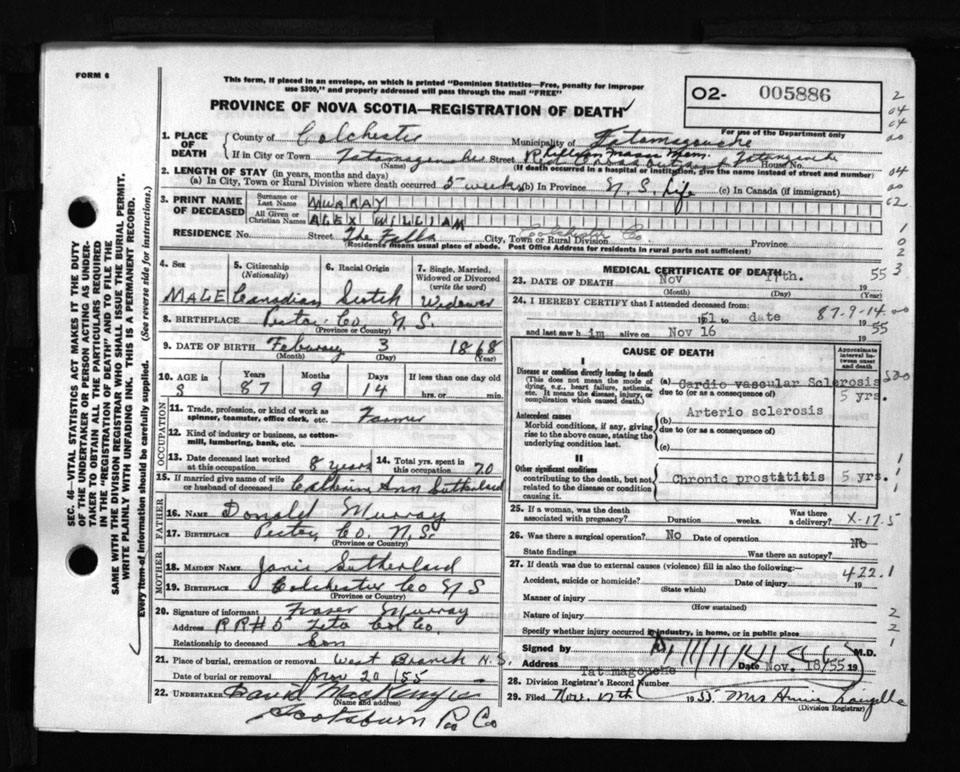 FORM 6
This form, if placed in an envelope, on which is printed "Dominion Statistics—Free, penalty for improper
use $300," and properly addressed will pass through the mail "FREE"
PROVINCE OF NOVA SCOTIA—REGISTRATION OF DEATH
O2- 005886
For use of the Department only
SEC. 46—VITAL STATISTICS ACT MAKES IT THE DUTY
OF THE UNDERTAKER OR PERSON ACTING AS UNDER-
TAKER TO OBTAIN ALL THE PARTICULARS REQUIRED
IN THE "REGISTRATION OF DEATH" AND TO FILE THE
SAME WITH THE DIVISION REGISTRAR WHO SHALL ISSUE THE BURIAL PERMIT.
WRITE PLAINLY WITH UNFADING INK. THIS IS A PERMANENT RECORD.
Every item of information should be carefully supplied. (See reverse side for instructions.)
1. PLACE OF DEATH
County of Colchester Municipality of Tatamagouche
If in City or Town Tatamagouche Street House No.
(Name) (If death occurred in a hospital or institution, give the name instead of street and number)
2. LENGTH OF STAY (in years, months and days)
(a) In City, Town or Rural Division where death occurred 5 weeks (b) In Province N.S. Life (c) In Canada (if immigrant)
3. PRINT NAME OF DECEASED
Surname or Last Name MURRAY
All Given or Christian Names ALEX WILLIAM
RESIDENCE No. Street The Falls City, Town or Rural Division Colchester Co Province
(Residence means usual place of abode. Post Office Address for residents in rural parts not sufficient)
4. Sex MALE
5. Citizenship (Nationality) Canadian
6. Racial Origin Scotch
7. Single, Married, Widowed or Divorced (write the word) Widower
8. BIRTHPLACE Pictou Co N.S.
(Province or Country)
9. DATE OF BIRTH Febuary 3 1868
(Month) (Day) (Year)
10. AGE in Years Months Days If less than one day old
3 87 9 14 hrs. or min.
OCCUPATION
11. Trade, profession, or kind of work as spinner, teamster, office clerk, etc. Farmer
12. Kind of industry or business, as cotton-mill, lumbering, bank, etc.
13. Date deceased last worked at this occupation 8 years
14. Total yrs. spent in this occupation 70
15. If married give name of wife or husband of deceased Catherine Ann Sutherland
FATHER
16. NAME Donald Murray
17. BIRTHPLACE Pictou Co. N.S.
(Province or Country)
MOTHER
18. MAIDEN NAME Janie Sutherland
19. BIRTHPLACE Colchester Co N S
(Province or Country)
20. Signature of informant Fraser Murray
Address RR# 5 Col Co.
Relationship to deceased Son
21. Place of burial, cremation or removal West Branch N.S.
Date of burial or removal Nov 20 /55
22. UNDERTAKER David MacKenzie
(Name and address)
Scotsburn Co
MEDICAL CERTIFICATE OF DEATH
23. DATE OF DEATH Nov 17th. 19 55
(Month) (Day)
24. I HEREBY CERTIFY that I attended deceased from:
1951 to date 87-9-14
and last saw him alive on Nov 16 19 55
CAUSE OF DEATH
Approximate interval between onset and death
I
Disease or condition directly leading to death
(This does not mean the mode of dying, e.g., heart failure, asthenia, etc. It means the disease, injury, or complication which caused death.)
(a) Cardio vascular Sclerosis 5 yrs.
due to (or as a consequence of)
Antecedent causes
Morbid conditions, if any, giving rise to the above cause, stating the underlying condition last.
Arterio sclerosis
(b)
due to (or as a consequence of)
(c)
II
Other significant conditions contributing to the death, but not related to the disease or condition causing it.
Chronic prostatitis 5 yrs.
25. If a woman, was the death associated with pregnancy? Duration weeks. Was there a delivery? X-17.5
26. Was there a surgical operation? No Date of operation
State findings Was there an autopsy? No
27. If death was due to external causes (violence) fill in also the following:— 422.1
Accident, suicide or homicide? Date of injury 19
(State which)
Manner of injury
(How sustained)
Nature of injury
Specify whether injury occurred in industry, in home, or in public place
Signed by M.D.
Address Tat magouche Date Nov. 18/55 19
28. Division Registrar's Record Number
29. Filed Nov. 1955 Mrs Annie
(Division Registrar)